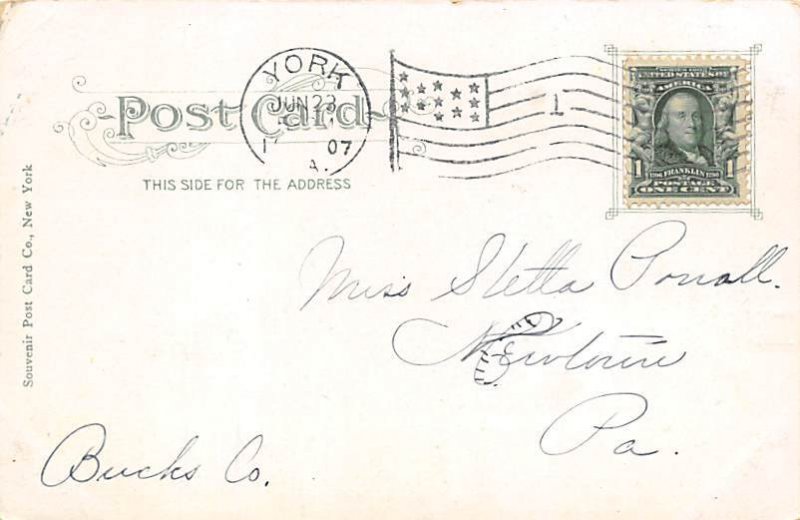 YORK
JUN 23
07
A.
1
Post Card
THIS SIDE FOR THE ADDRESS
UNITED STATES OF
AMERICA
1 FRANKLIN 1
POSTAGE
ONE CENT
Souvenir Post Card Co., New York
Miss Stella
Newtown
Pa.
Bucks Co.